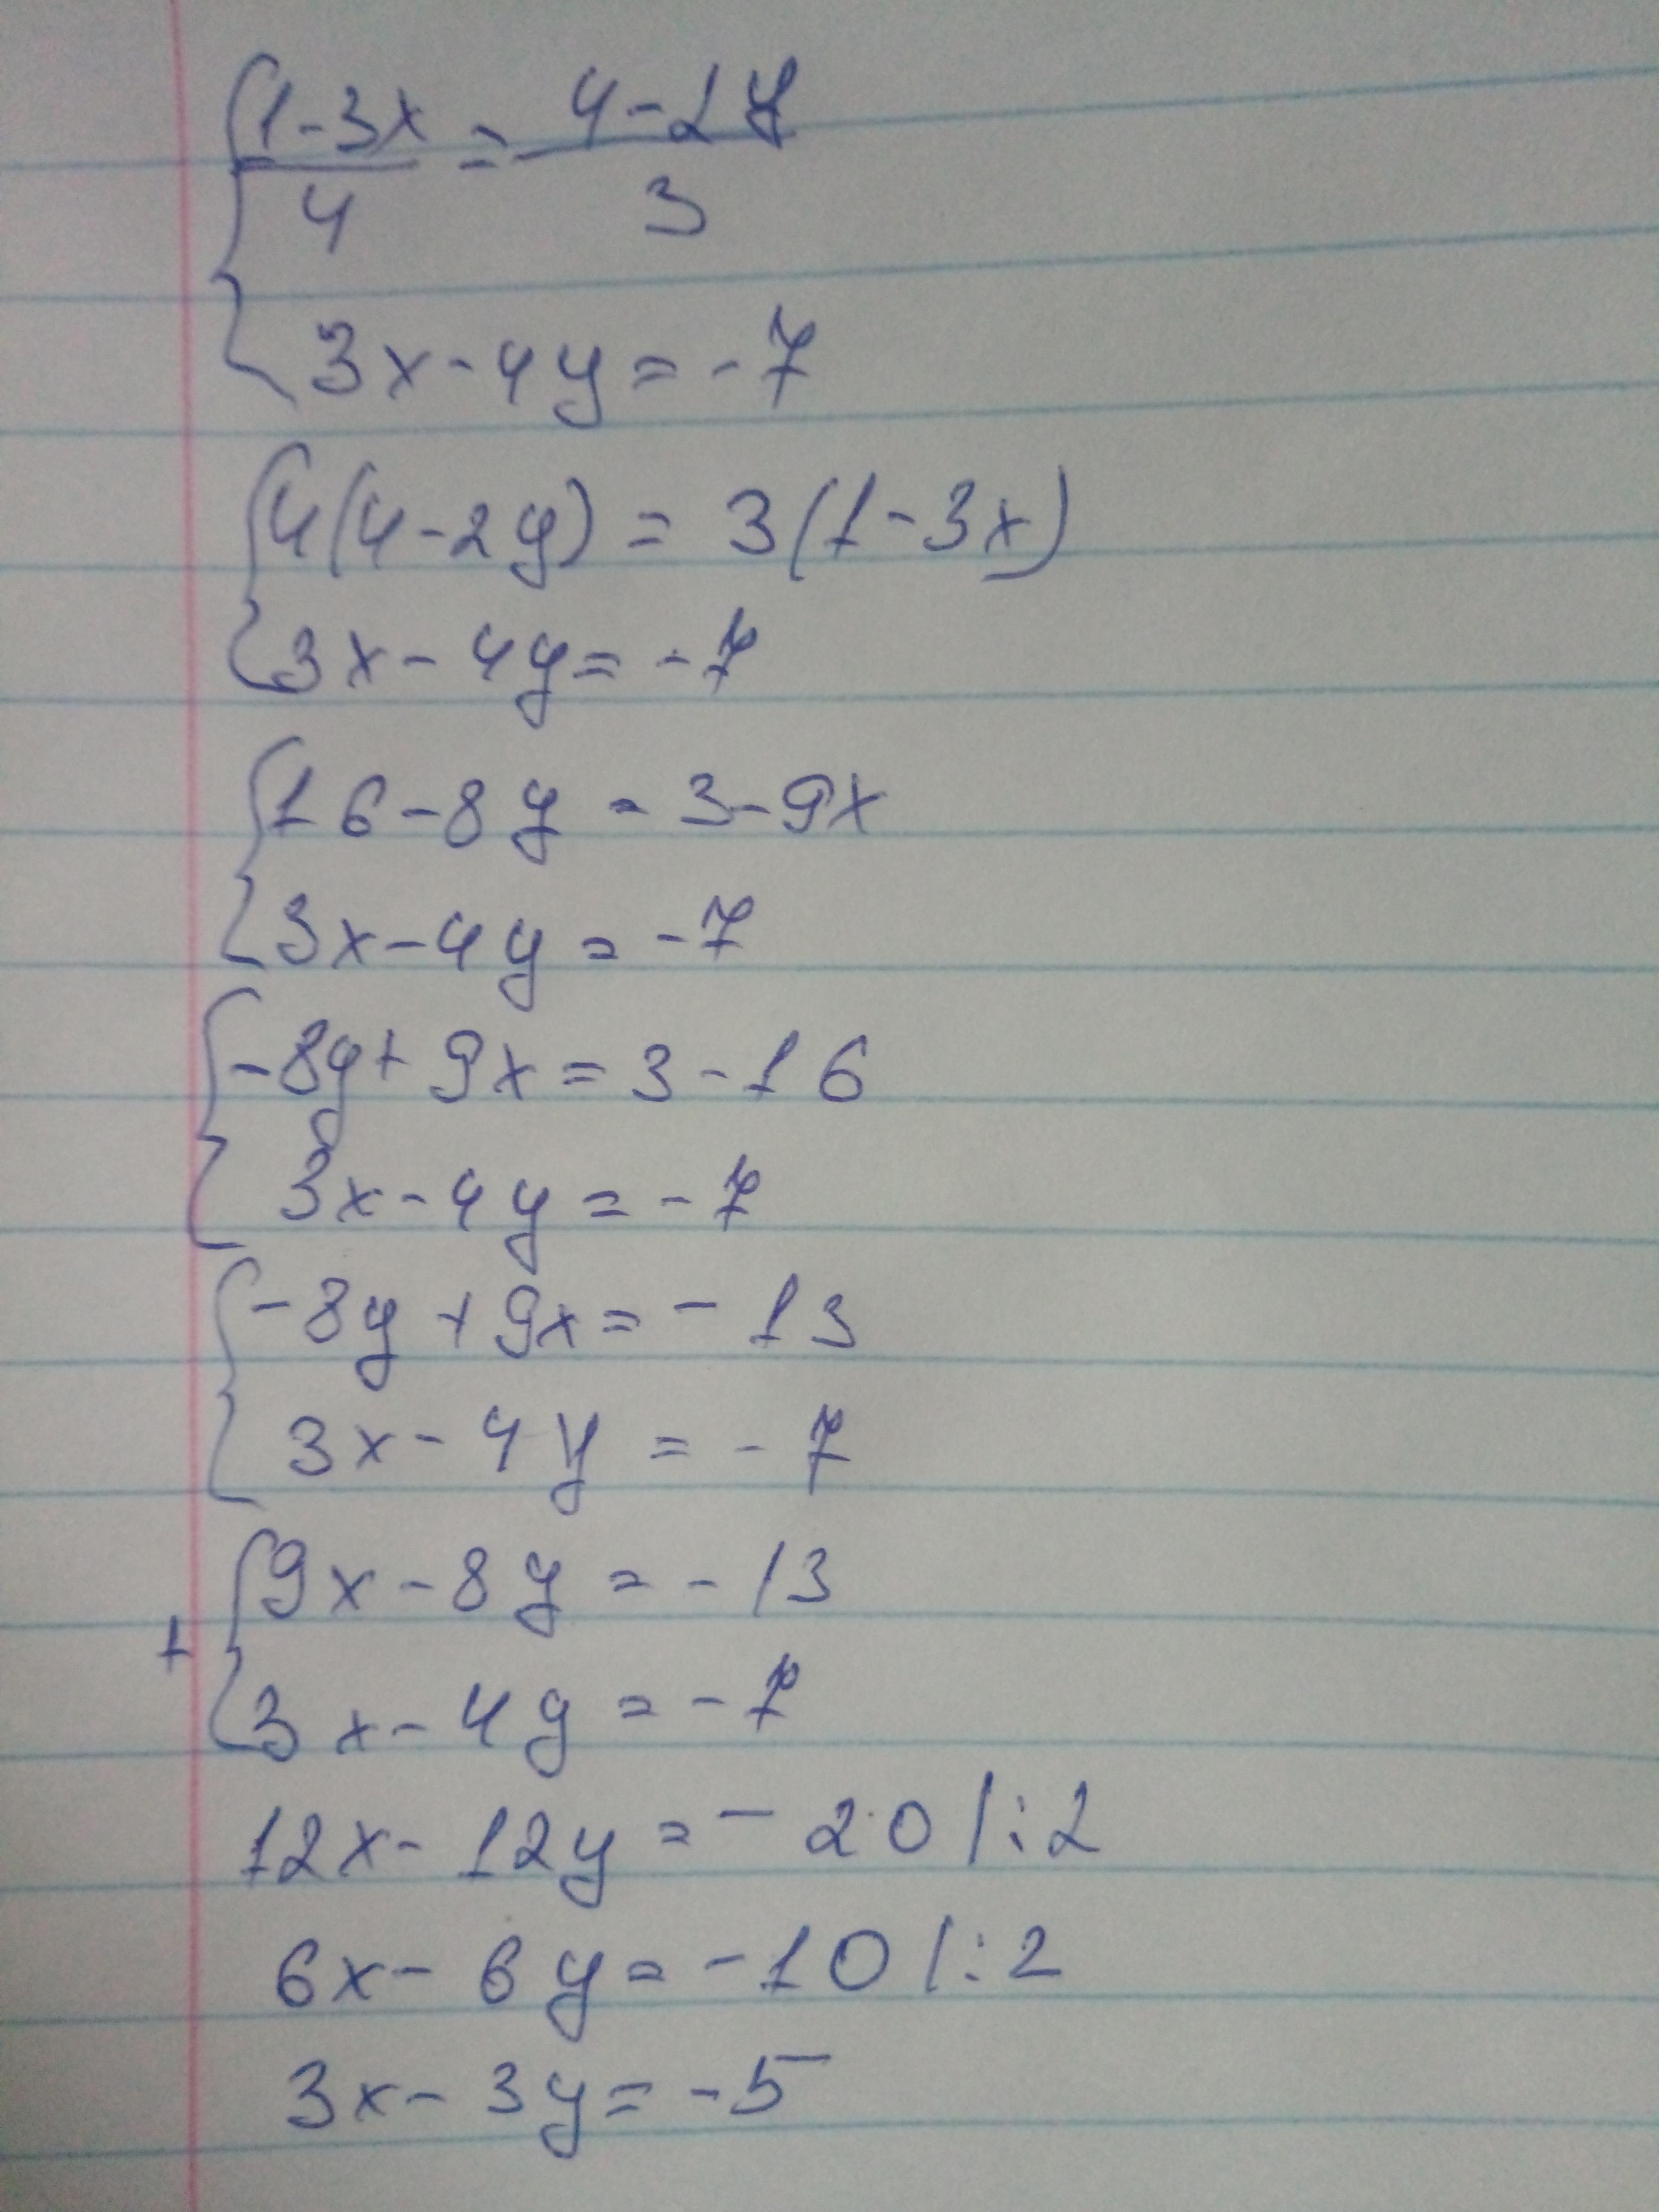 1-3x = 4-2y
4 3
3x-4y=-7
4(4-2y) = 3(1-3x)
3x-4y=-7
16-8y=3-9x
3x-4y=-7
-8y+9x=3-16
3x-4y=-7
-8y+9x=-13
3x-4y=-7
9x-8y=-13
+
3x-4y=-7
12x-12y=-20 |:2
6x-6y=-10 |:2
3x-3y=-5